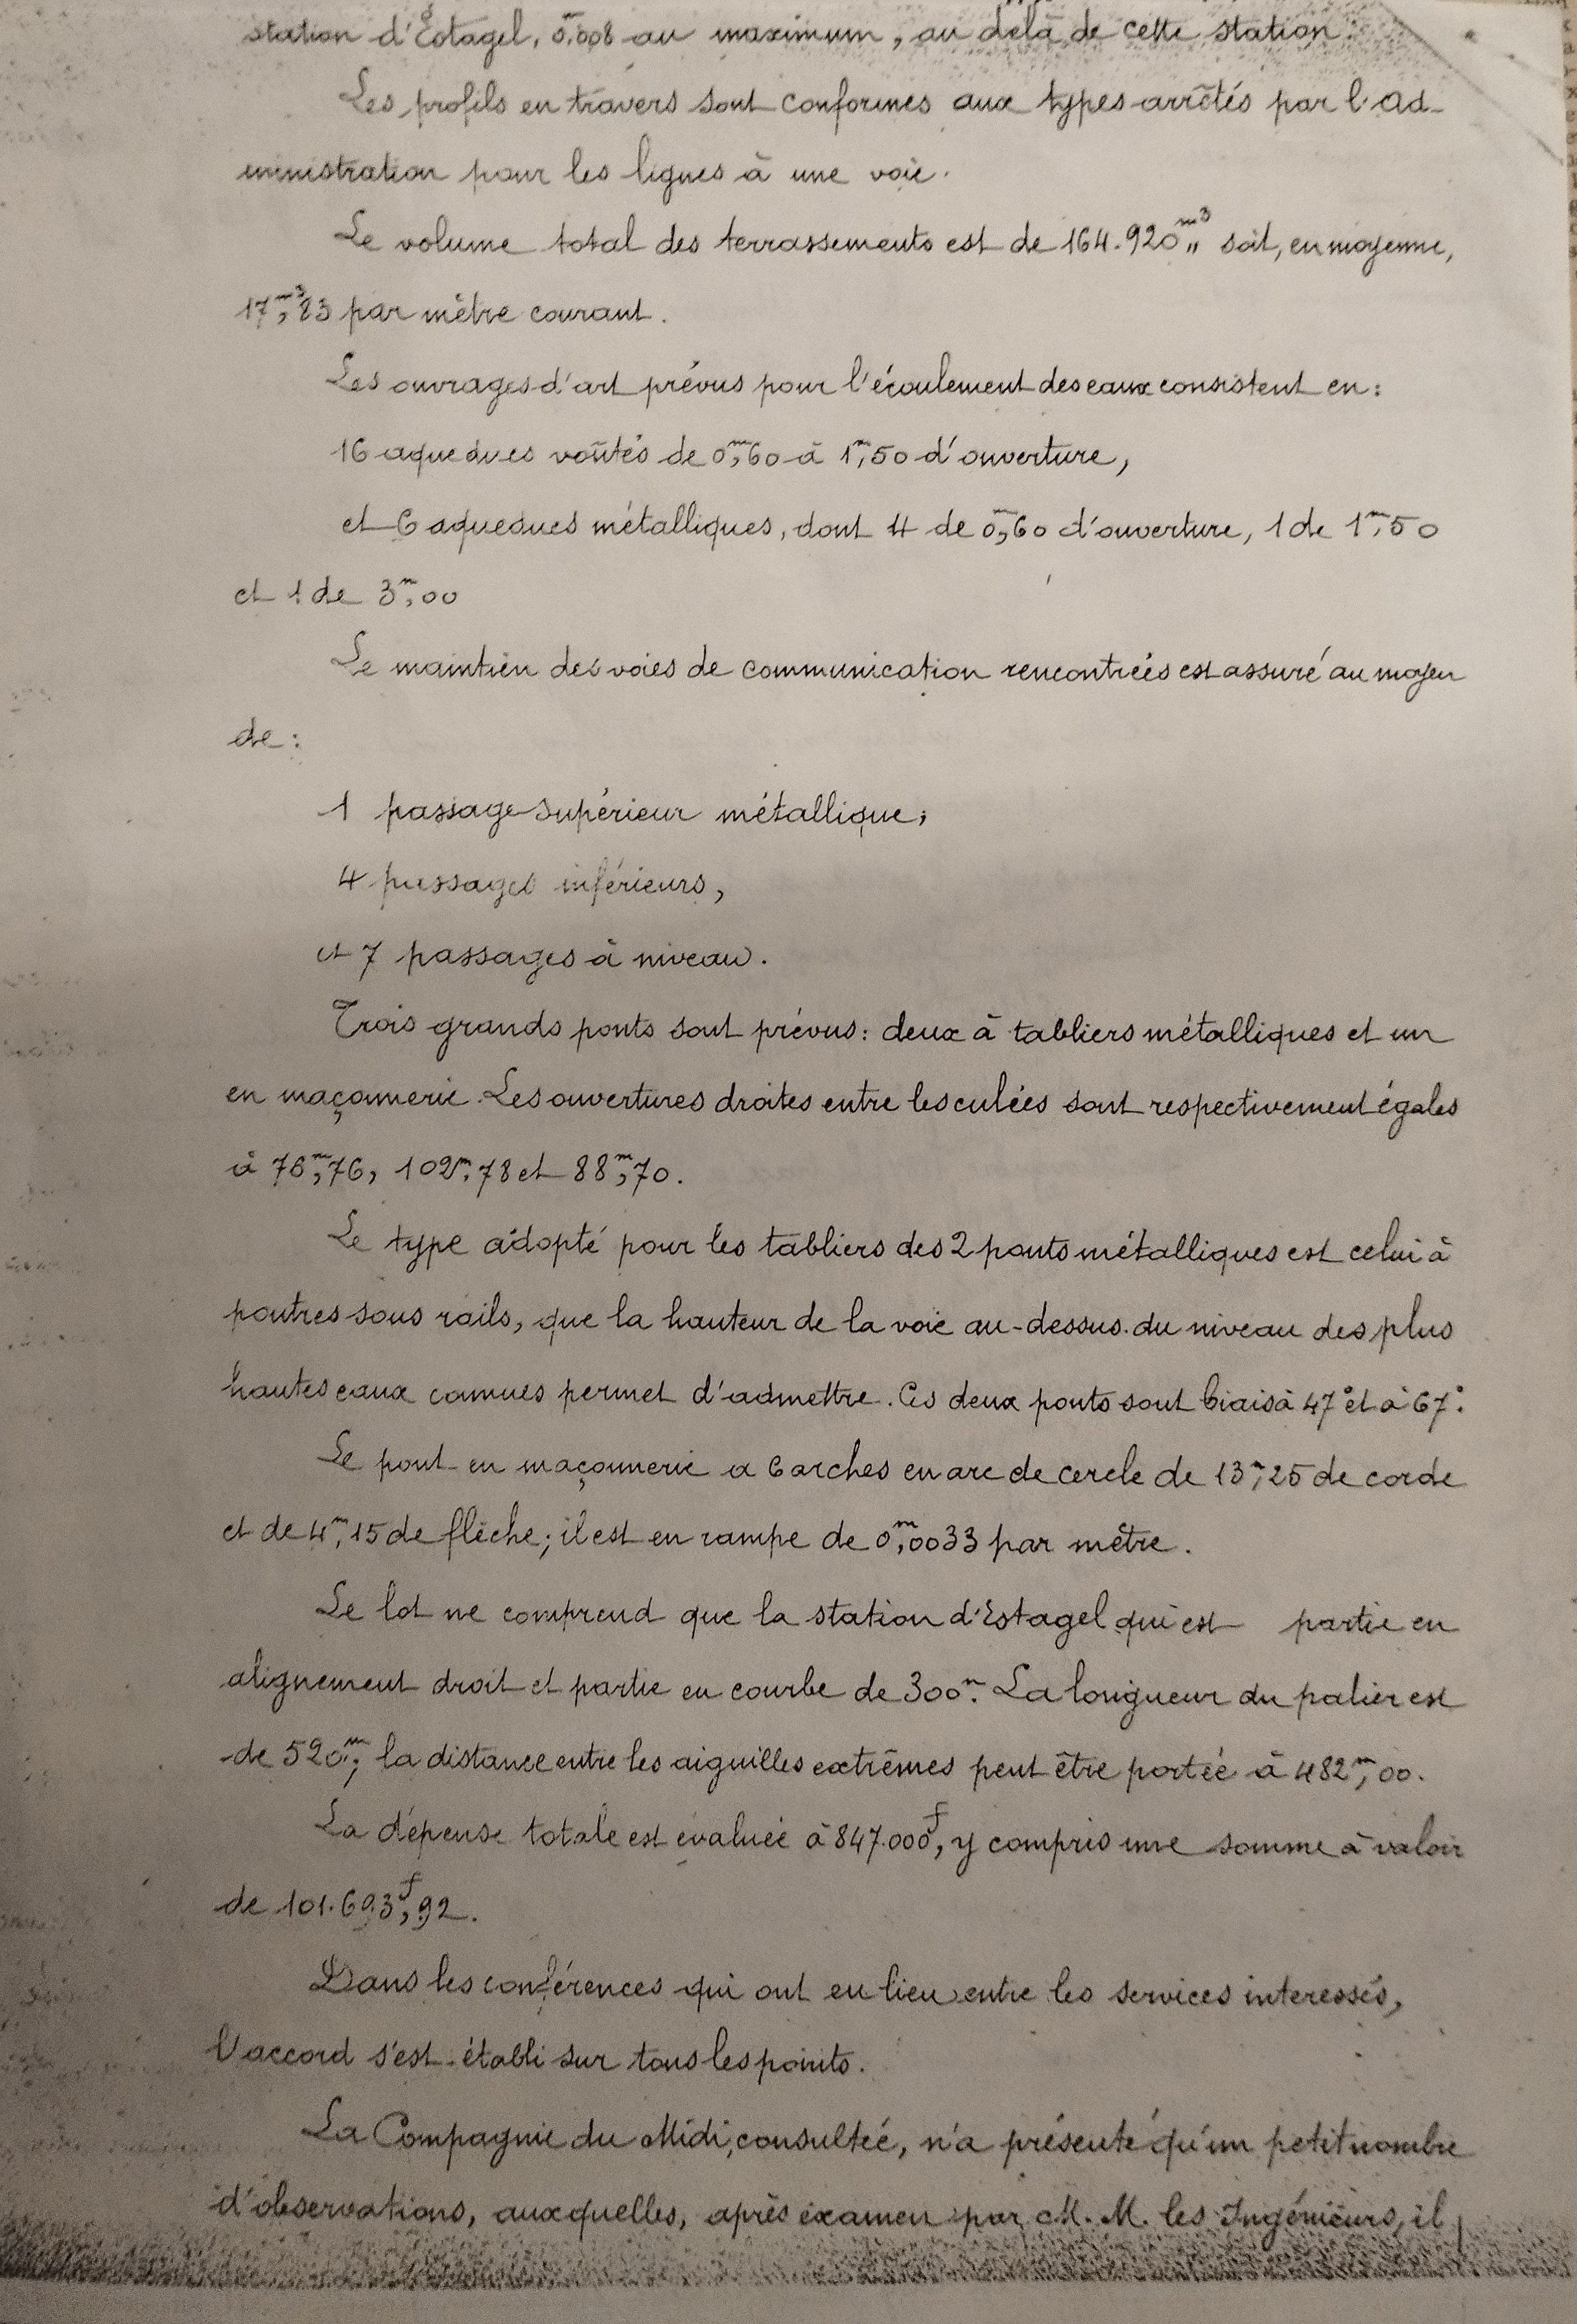 station d'Estagel, 0m,008 au maximum, au delà de cette station.
Les profils en travers sont conformes aux types arrêtés par l'ad-
ministration pour les lignes à une voie.
Le volume total des terrassements est de 164.920m3,, soit, en moyenne,
17m3,83 par mètre courant.
Les ouvrages d'art prévus pour l'écoulement des eaux consistent en:
16 aqueducs voûtés de 0m,60 à 1m,50 d'ouverture,
et 6 aqueducs métalliques, dont 4 de 0m,60 d'ouverture, 1 de 1m,50
et 1 de 3m,00
Le maintien des voies de communication rencontrées est assuré au moyen
de:
1 passage supérieur métallique,
4 passages inférieurs,
et 7 passages à niveau.
Trois grands ponts sont prévus: deux à tabliers métalliques et un
en maçonnerie. Les ouvertures droites entre les culées sont respectivement égales
à 76m,76, 102m,78 et 88m,70.
Le type adopté pour les tabliers des 2 ponts métalliques est celui à
poutres sous rails, que la hauteur de la voie au-dessus du niveau des plus
hautes eaux connues permet d'admettre. Ces deux ponts sont biais à 47° et à 67°.
Le pont en maçonnerie a 6 arches en arc de cercle de 13m,25 de corde
et de 4m,15 de flèche; il est en rampe de 0m,0033 par mètre.
Le lot ne comprend que la station d'Estagel qui est partie en
alignement droit et partie en courbe de 300m. La longueur du palier est
de 520m; la distance entre les aiguilles extrêmes peut être portée à 482m,00.
La dépense totale est évaluée à 847.000f, y compris une somme à valoir
de 101.693f,92.
Dans les conférences qui ont eu lieu entre les services interessés,
l'accord s'est établi sur tous les points.
La Compagnie du Midi, consultée, n'a présenté qu'un petit nombre
d'observations, auxquelles, après examen par M. M. les Ingénieurs, il